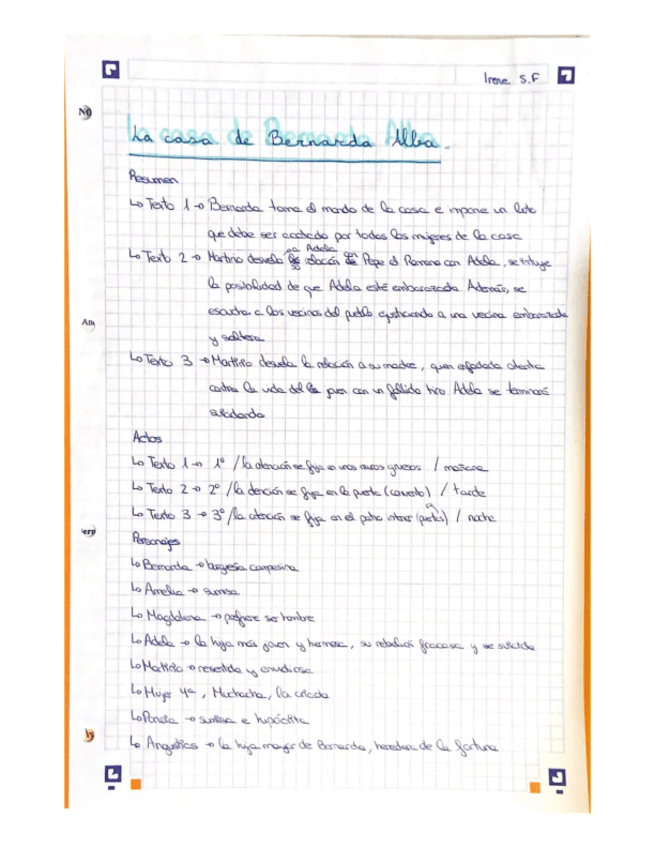 Irene S.F
La casa de Bernarda Alba.
Resumen
↳ Texto 1 → Bernarda toma el mando de la casa e impone un luto
que debe ser acatado por todas las mujeres de la casa
↳ Texto 2 → Martirio desvela la relación de Pepe el Romano con Adela, se intuye
la posibilidad de que Adela esté embarazada. Además, se
escucha a los vecinos del pueblo ajusticiando a una vecina embarazada
y soltera
↳ Texto 3 → Martirio desvela la relación a su madre, quien enfadada atenta
contra la vida del pero con un fallido tiro. Adela se terminará
suicidando
Actos
↳ Texto 1 → 1º / la atención se fija en unos muros gruesos / mañana
↳ Texto 2 → 2º / la atención se fija en la puerta (convento) / tarde
↳ Texto 3 → 3º / la atención se fija en el patio interior / noche
Personajes
↳ Bernarda → burguesía campesina
↳ Amelia → sumisa
↳ Magdalena → prefiere ser hombre
↳ Adela → la hija más joven y hermosa, su relación fracasa y se suicida
↳ Martirio → resentida y envidiosa
↳ Mujer 4ª, Muchacha, la criada
↳ Poncia → sumisa e hipócrita
↳ Angustias → la hija mayor de Bernarda, heredera de la fortuna